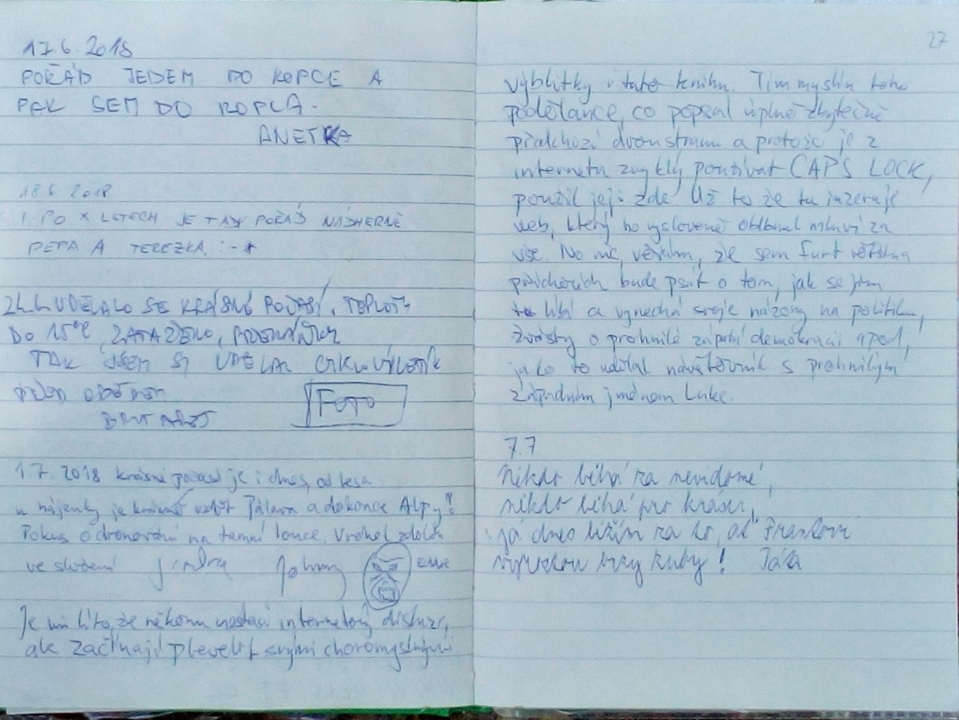 17.6.2018
POŘÁD JEDEM DO KOPCE A
PAK SEM DO KOPCA.
ANETKA
18.6.2018
! PO X LETECH JE TADY POŘÁD NÁDHERNĚ
PEPA A TEREZKA. :-*
UDĚLALO SE KRÁSNÉ POČASÍ, TEPLOTY
DO 15°C, ZATAŽENO,
TAK JSEM SI UDĚLAL VÝLETÍK
PŘED OBĚDEM
FOTO
1.7.2018 krásné počasí je i dnes, od lesa
u je krásně vidět Pálava a dokonce Alpy!
Pokus o dronování na temné louce. Vrchol zdolán
ve složení Jindra Johny
Je mi líto, že někomu nestačí internetový diskuzi,
ale začínají plevelit svými choromyslnými
27
výblitky i tuto knihu. Tím myslím toho
podělance, co popsal úplně zbytečně
předchozí dvoustranu a protože je z
internetu zvyklý používat CAPS LOCK,
použil jej i zde. Už to že tu inzeruje
web, který ho vysloveně oblbnul mluví za
vše. No nic, věřím, že sem furt většina
příchozích bude psát o tom, jak se jim
tu líbí a vynechá svoje názory na politiku,
žvásty o prohnilé západní demokracii apod.,
jako to udělal návštěvník s prohnilým
západním jménem Luke.
7.7
Někdo běhá za
někdo běhá pro krásu,
já dnes běžím za to, ať Frantovi
brzy